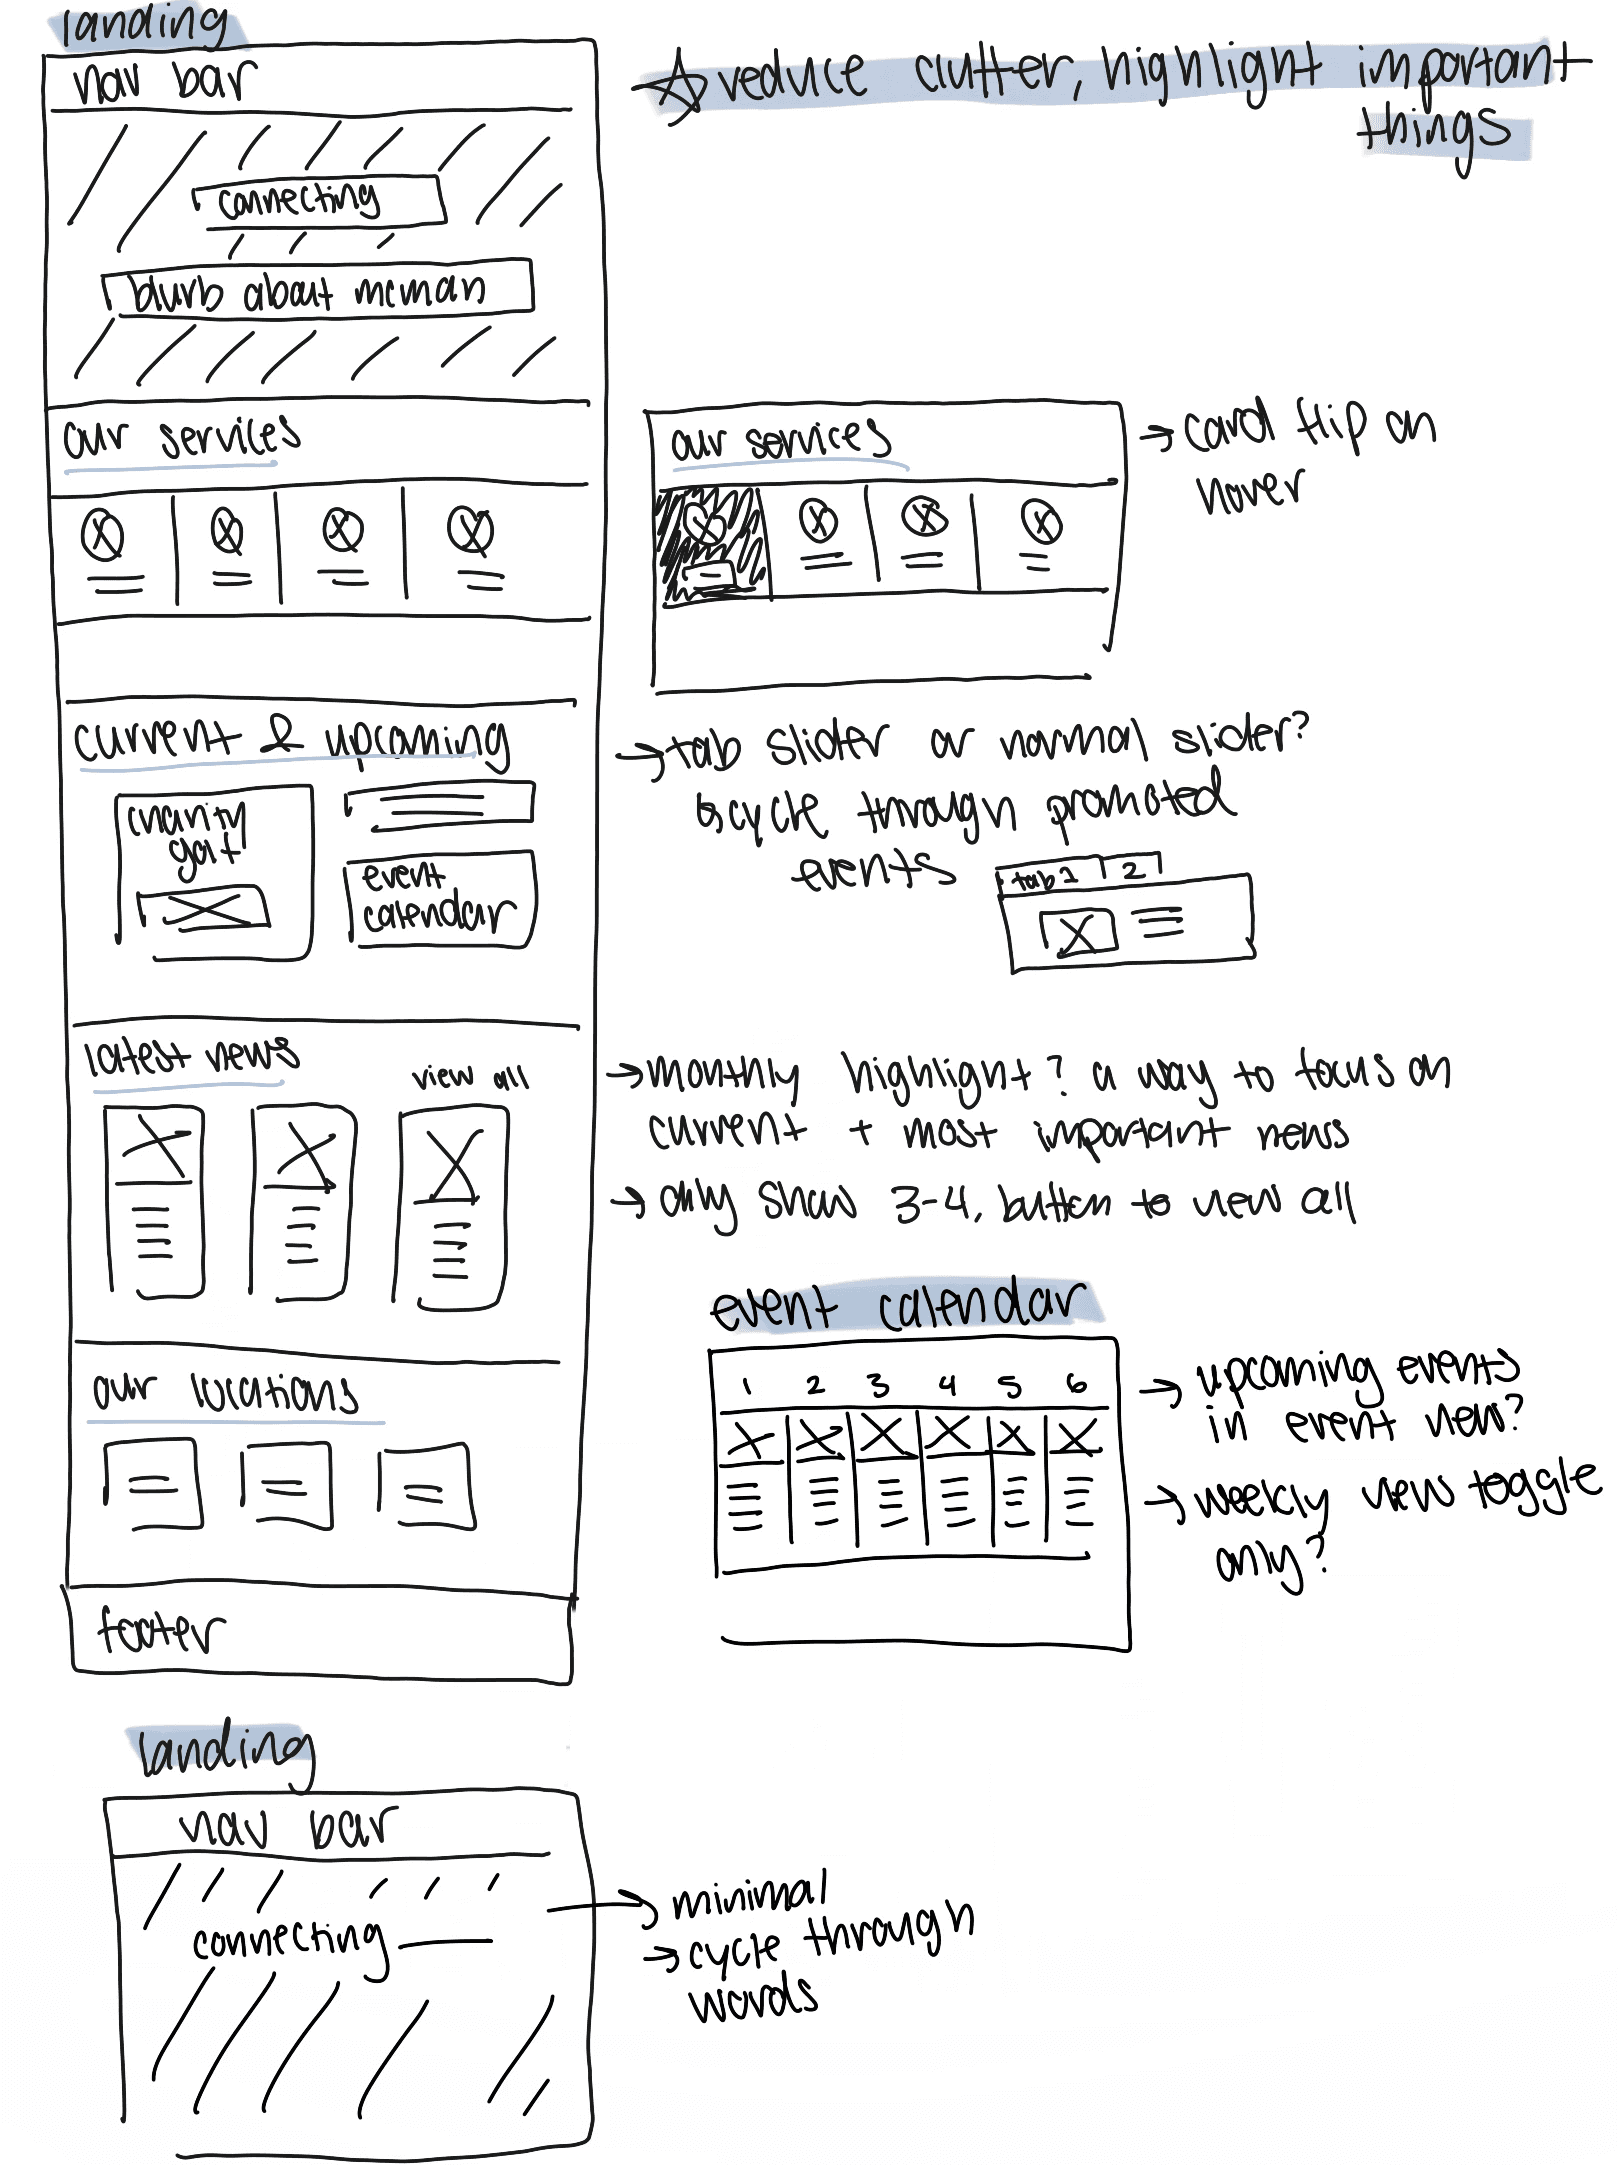 landing
nav bar
connecting
blurb about mcman
our services
current & upcoming
charity
golf
event
calendar
latest news
view all
our locations
footer
☆ reduce clutter, highlight important
things
our services
→ card flip on
hover
→ tab slider or normal slider?
↳ cycle through promoted
events
tab 1 2
→ monthly highlight? a way to focus on
current + most important news
→ only show 3-4, button to view all
event calendar
1 2 3 4 5 6
→ upcoming events
in event view?
→ weekly view toggle
only?
landing
nav bar
connecting ___
→ minimal
→ cycle through
words